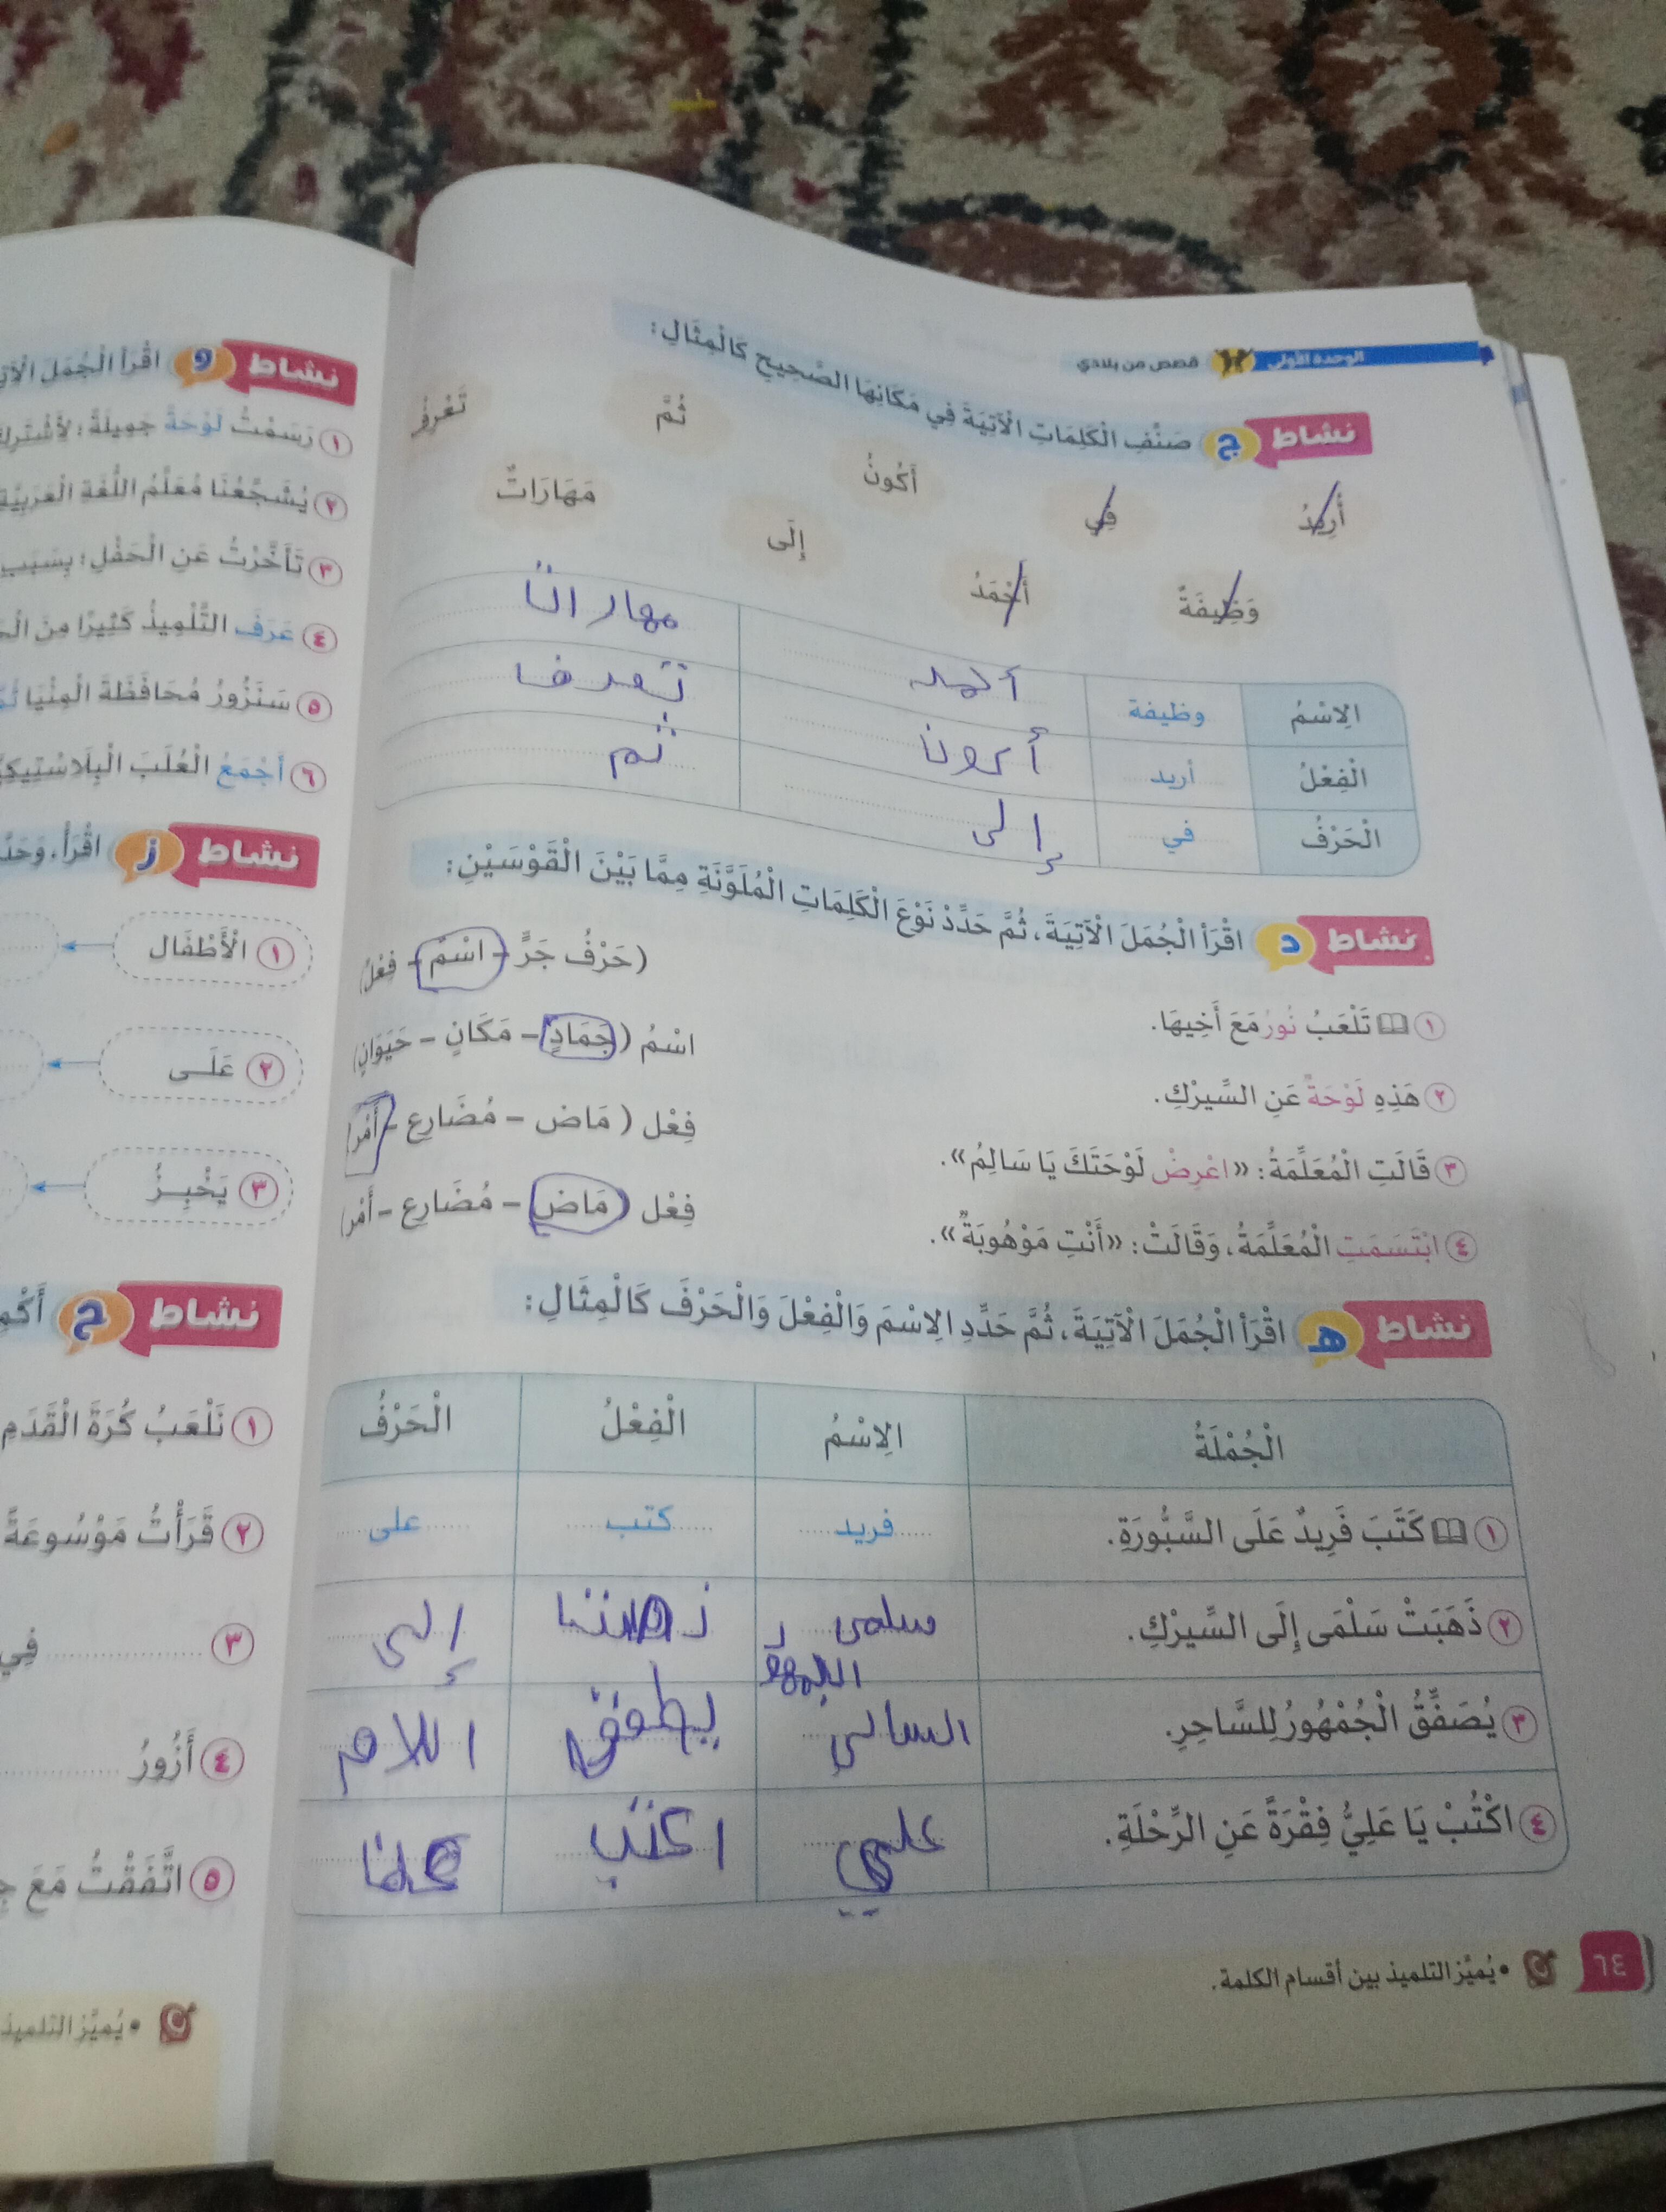 الوحدة الأولى ١٢ قصص من بلادي
نشاط ج صَنِّفِ الْكَلِمَاتِ الْآتِيَةَ فِي مَكَانِهَا الصَّحِيحِ كَالْمِثَالِ:
أُرِيدُ فِي أَكُونُ ثُمَّ تَعْرِفُ
وَظِيفَةٌ أَحْمَدُ إِلَى مَهَارَاتٌ
الِاسْمُ وظيفة أحمد مهارات
الْفِعْلُ أريد أكون تعرف
الْحَرْفُ في إلى ثم
نشاط د اقْرَأِ الْجُمَلَ الْآتِيَةَ، ثُمَّ حَدِّدْ نَوْعَ الْكَلِمَاتِ الْمُلَوَّنَةِ مِمَّا بَيْنَ الْقَوْسَيْنِ:
١ تَلْعَبُ نُورُ مَعَ أَخِيهَا. (حَرْفُ جَرٍّ - اسْمٌ - فِعْلٌ)
٢ هَذِهِ لَوْحَةٌ عَنِ السِّيرْكِ. اسْمُ (جَمَادٍ - مَكَانٍ - حَيَوَانٍ)
٣ قَالَتِ الْمُعَلِّمَةُ: «اعْرِضْ لَوْحَتَكَ يَا سَالِمُ». فِعْل (مَاض - مُضَارِع - أَمْر)
٤ ابْتَسَمَتِ الْمُعَلِّمَةُ، وَقَالَتْ: «أَنْتِ مَوْهُوبَةٌ». فِعْل (مَاض - مُضَارِع - أَمْر)
نشاط هـ اقْرَأِ الْجُمَلَ الْآتِيَةَ، ثُمَّ حَدِّدِ الِاسْمَ وَالْفِعْلَ وَالْحَرْفَ كَالْمِثَالِ:
الْجُمْلَةُ الِاسْمُ الْفِعْلُ الْحَرْفُ
١ كَتَبَ فَرِيدٌ عَلَى السَّبُّورَةِ. فريد كتب على
٢ ذَهَبَتْ سَلْمَى إِلَى السِّيرْكِ. سلمى إلى
٣ يُصَفِّقُ الْجُمْهُورُ لِلسَّاحِرِ. اللام
٤ اكْتُبْ يَا عَلِيُّ فِقْرَةً عَنِ الرِّحْلَةِ. علي اكتب
٦٤ • يُميِّز التلميذ بين أقسام الكلمة.
نشاط و اقْرَأِ الْجُمَلَ
١ رَسَمْتُ لَوْحَةً جَمِيلَةً؛
٢ يُشَجِّعُنَا مُعَلِّمُ اللُّغَةِ الْعَرَبِيَّةِ
٣ تَأَخَّرْتُ عَنِ الْحَفْلِ؛ بِسَبَبِ
٤ عَرَفَ التِّلْمِيذُ كَثِيرًا مِنَ
٥ سَنَزُورُ مُحَافَظَةَ الْمِنْيَا
٦ أَجْمَعُ الْعُلَبَ
نشاط ز اقْرَأْ، وَحَدِّ
١ الْأَطْفَال
٢ عَلَى
٣ يَخْبِزُ
نشاط ح
١ نَلْعَبُ كُرَةَ الْقَدَمِ
٢ قَرَأْتُ مَوْسُوعَةً
٣ فِي
٤ أَزُورُ
٥ اتَّفَقْتُ مَعَ
• يُميِّز التلميذ